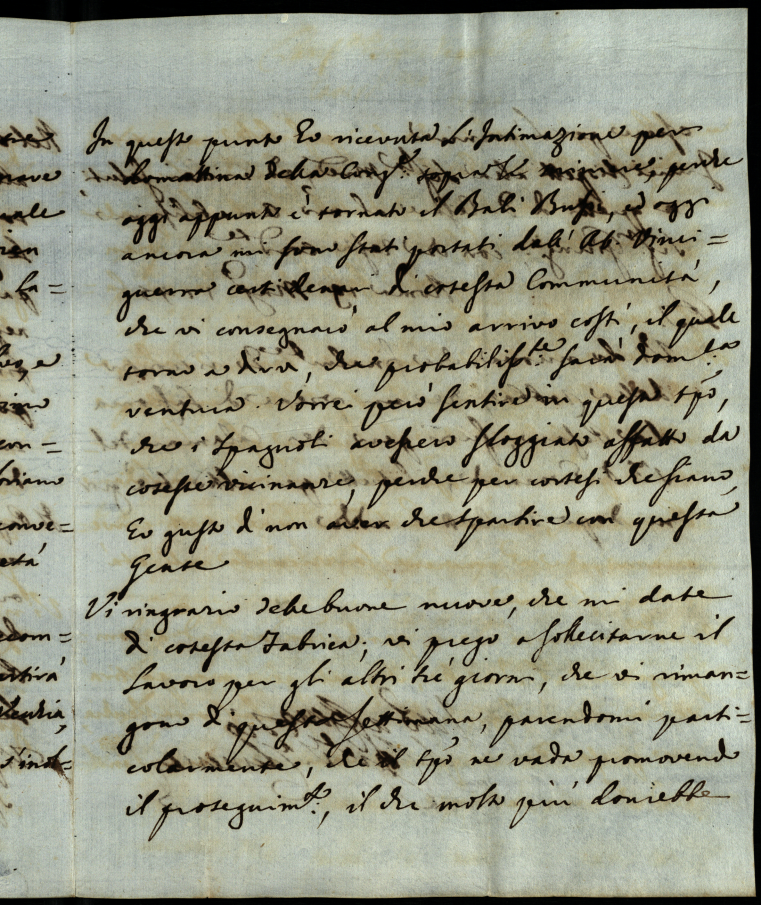 In questo punto ho ricevuta l'Intimazione per
Domattina della Cong.e sopra le perche
oggi appunto è tornato il Balì ed oggi
ancora mi sono stati portati dall' Ab. Vinci=
guerra certi denari di cotesta Communità,
che vi consegnarò al mio arrivo costì, il quale
torno a dirvi, che probabilissi.te sarà dom.ca
ventura. Vorrei però sentire in questo tpō,
che i Spagnoli avessero sloggiato affatto da
coteste vicinanze, perche per cortesi che siano,
ho gusto di non aver che spartire con questa
Gente
Vi ringrazio delle buone nuove, che mi date
di cotesta Fabrica; vi prego a sollecitarne il
Lavoro per gli altri tré giorni, che vi riman=
gono di questa settimana, parendomi parti=
colarmente, che il tpō ne vada promovendo
il proseguim.to, il che molto più dovrebbe
nuove
uale
la=
con=
ordiamo
conve=
età
com=
artirà